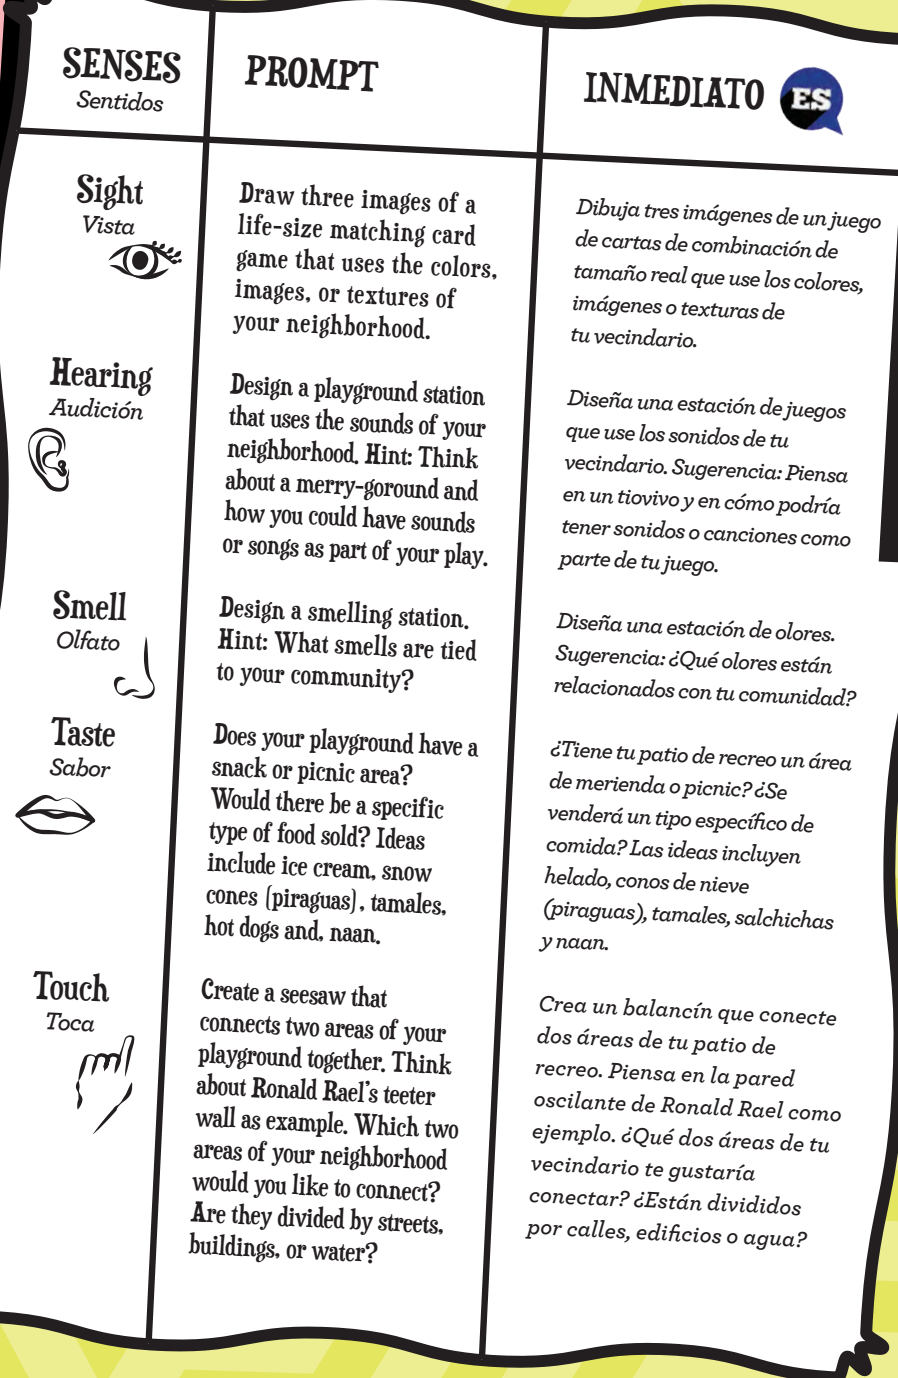 SENSES
Sentidos
PROMPT
INMEDIATO
ES
Sight
Vista
Draw three images of a
life-size matching card
game that uses the colors,
images, or textures of
your neighborhood.
Dibuja tres imágenes de un juego
de cartas de combinación de
tamaño real que use los colores,
imágenes o texturas de
tu vecindario.
Hearing
Audición
Design a playground station
that uses the sounds of your
neighborhood. Hint: Think
about a merry-goround and
how you could have sounds
or songs as part of your play.
Diseña una estación de juegos
que use los sonidos de tu
vecindario. Sugerencia: Piensa
en un tiovivo y en cómo podría
tener sonidos o canciones como
parte de tu juego.
Smell
Olfato
Design a smelling station.
Hint: What smells are tied
to your community?
Diseña una estación de olores.
Sugerencia: ¿Qué olores están
relacionados con tu comunidad?
Taste
Sabor
Does your playground have a
snack or picnic area?
Would there be a specific
type of food sold? Ideas
include ice cream, snow
cones (piraguas), tamales,
hot dogs and, naan.
¿Tiene tu patio de recreo un área
de merienda o picnic? ¿Se
venderá un tipo específico de
comida? Las ideas incluyen
helado, conos de nieve
(piraguas), tamales, salchichas
y naan.
Touch
Toca
Create a seesaw that
connects two areas of your
playground together. Think
about Ronald Rael's teeter
wall as example. Which two
areas of your neighborhood
would you like to connect?
Are they divided by streets,
buildings, or water?
Crea un balancín que conecte
dos áreas de tu patio de
recreo. Piensa en la pared
oscilante de Ronald Rael como
ejemplo. ¿Qué dos áreas de tu
vecindario te gustaría
conectar? ¿Están divididos
por calles, edificios o agua?